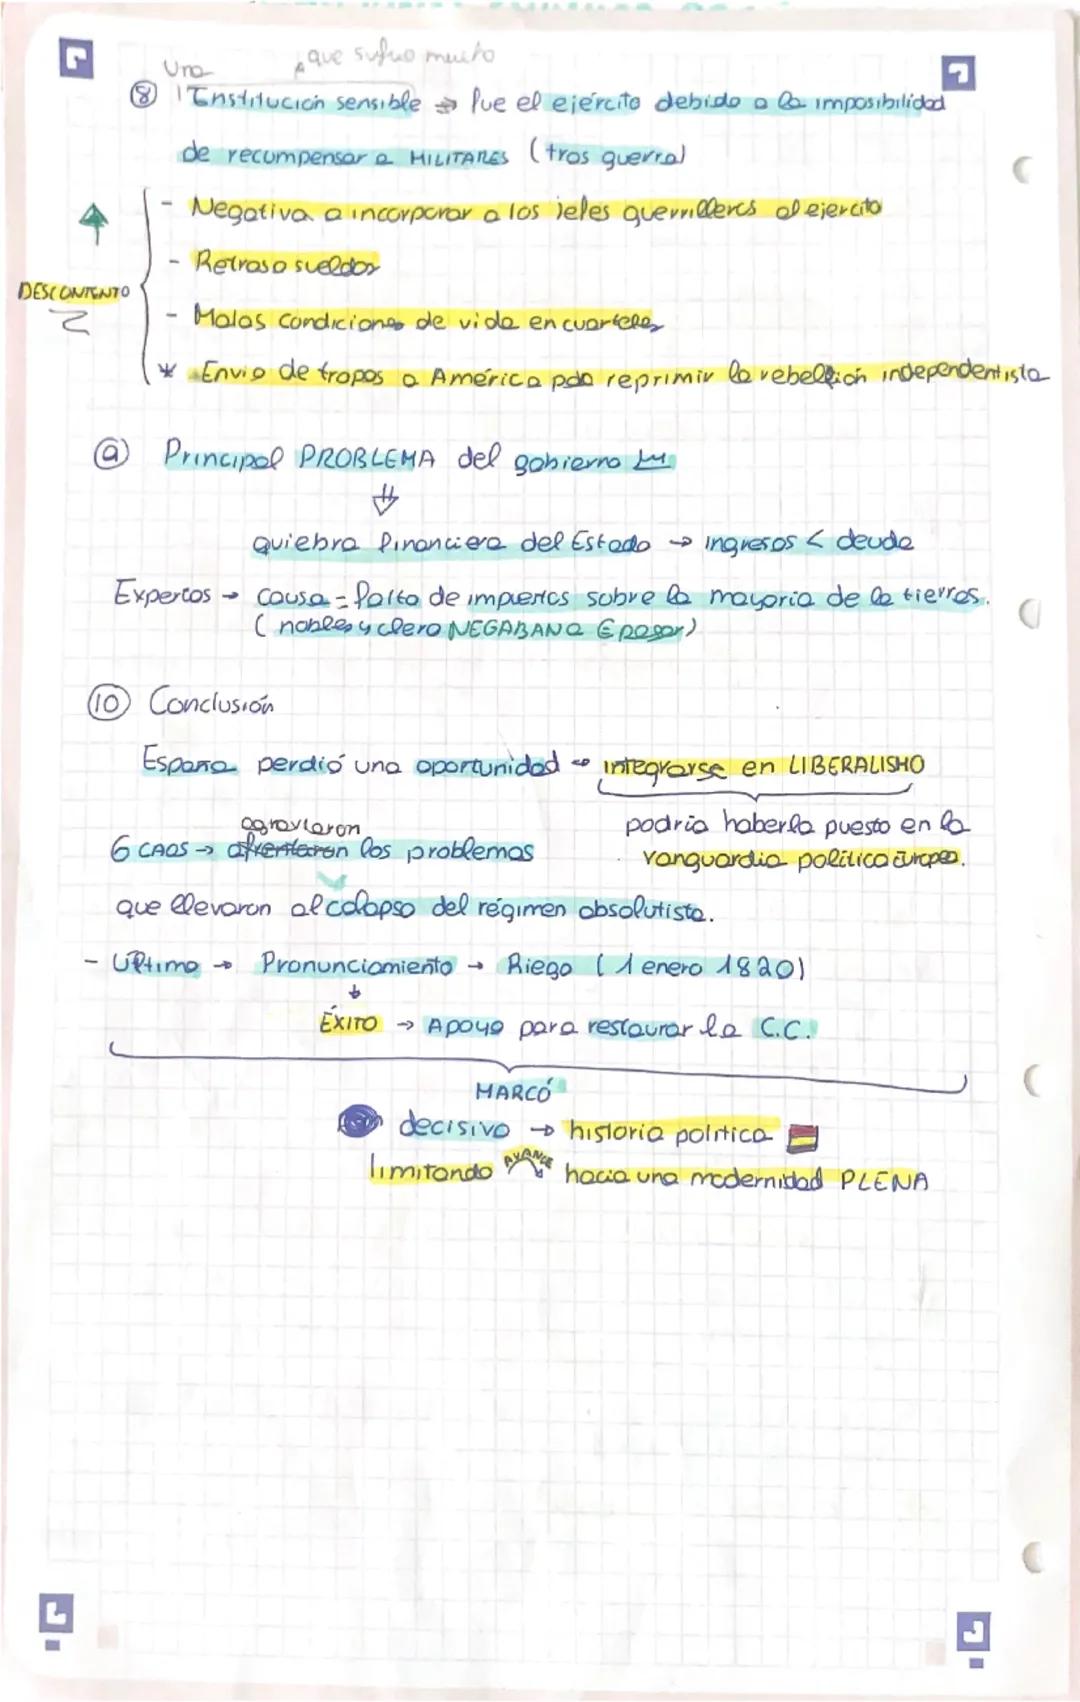 Una que sufrió mucho
⑧ Institución sensible ⇒ fue el ejército debido a la imposibilidad
de recompensar a MILITARES (tras guerra)
- Negativa a incorporar a los jefes guerrilleros al ejercito
- Retraso sueldos
DESCONTENTO
- Malas condiciones de vida en cuarteles
* Envio de tropas a América para reprimir la rebelión independentista
⑨ Principal PROBLEMA del gobierno
quiebra financiera del Estado → ingresos < deuda
Expertos → causa = falta de impuestos sobre la mayoria de la tierras.
(nobles y clero NEGABAN a € pagar)
⑩ Conclusión
España perdió una oportunidad → integrarse en LIBERALISMO
podria haberla puesto en la
vanguardia politica europea.
agravaron
6 CAOS → afrentaron los problemas
que llevaron al colapso del régimen absolutista.
- Última → Pronunciamiento → Riego (1 enero 1820)
ÉXITO → Apoyo para restaurar la C.C.
MARCÓ
decisivo → historia politica
limitando AVANCE hacia una modernidad PLENA